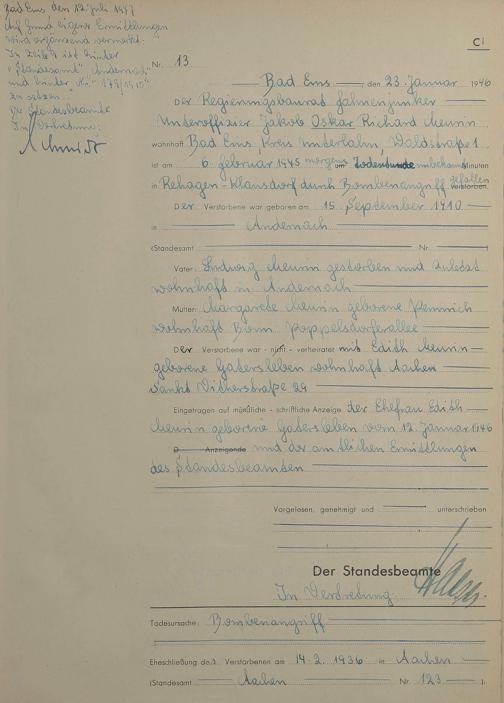 Bad Ems den 12. Juli 1957
Auf Grund eigener Ermittlungen
wird ergänzend vermerkt:
In Zeile 9 ist hinter
"Standesamt" "Andernach"
und hinter "Nr." "
zu setzen.
Der Standesbeamte
In Vertretung:
Schmidt
C
Nr. 13
Bad Ems den 23. Januar 1946
Der Regierungsbaurat Fahnenjunker
Unteroffizier Jakob Oskar Richard Meurin
wohnhaft Bad Ems Kreis Unterlahn, Waldstraße 1
ist am 6. Februar 1945 morgens um Todesstunde unbekannt Minuten
in Rehagen-Klausdorf durch Bombenangriff gefallen verstorben.
Der Verstorbene war geboren am 15. September 1910
in Andernach
(Standesamt Nr. )
Vater: Ludwig Meurin gestorben und zuletzt
wohnhaft in Andernach
Mutter: Margarete Meurin geborene
wohnhaft Bonn Poppelsdorferallee
Der Verstorbene war - nicht - verheiratet mit Edith Meurin
geborene Gatersleben wohnhaft Aachen
Sankt Vitherstraße 29
Eingetragen auf mündliche - schriftliche Anzeige der Ehefrau Edith
Meurin geborene Gatersleben vom 12. Januar 1946
D Anzeigende und der amtlichen Ermittlungen
des Standesbeamten
Vorgelesen, genehmigt und unterschrieben
Der Standesbeamte
In Vertretung:
Todesursache: Bombenangriff
Eheschließung de Verstorbenen am 14.2.1936 in Aachen
(Standesamt Aachen Nr. 123 ).